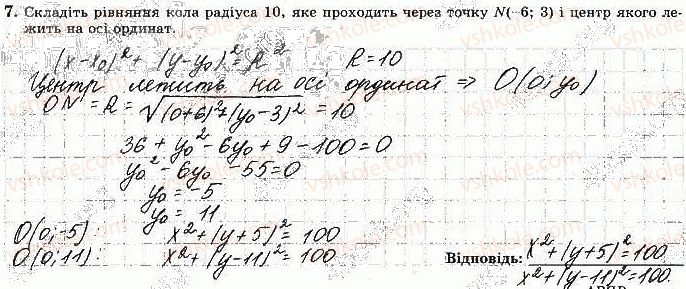 7. Складіть рівняння кола радіуса 10, яке проходить через точку N(-6; 3) і центр якого ле-
жить на осі ординат.
(x-x₀)²+(y-y₀)²=R² R=10
Центр лежить на осі ординат ⇒ O(0; y₀)
ON=R=√((0+6)²+(y₀-3)²)=10
36+y₀²-6y₀+9-100=0
y₀²-6y₀-55=0
y₀=-5
y₀=11
O(0;-5): x²+(y+5)²=100
O(0;11): x²+(y-11)²=100
Відповідь: x²+(y+5)²=100
x²+(y-11)²=100.